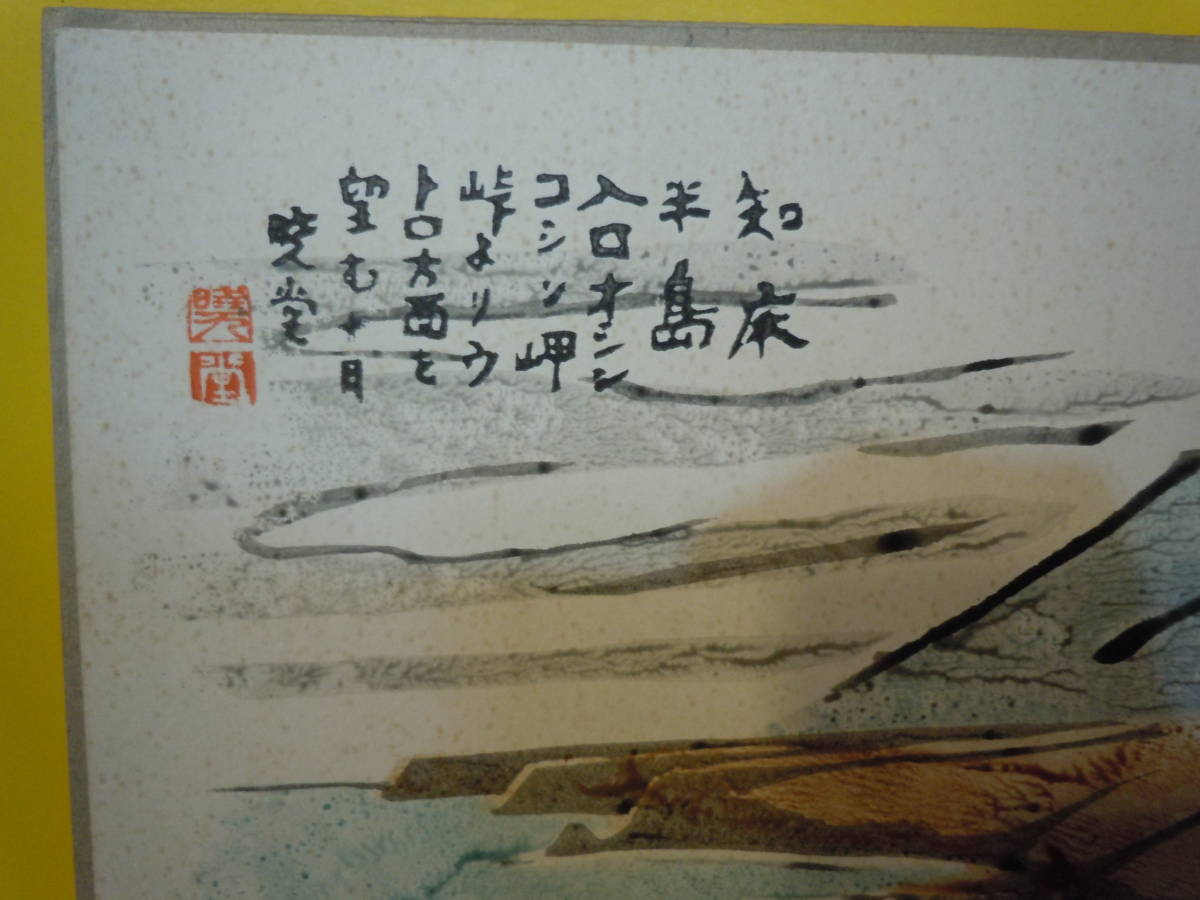 知床
半島
入口オシン
コシン岬
峠よりウ
トロ方面を
望む十日
暁堂
曉
堂